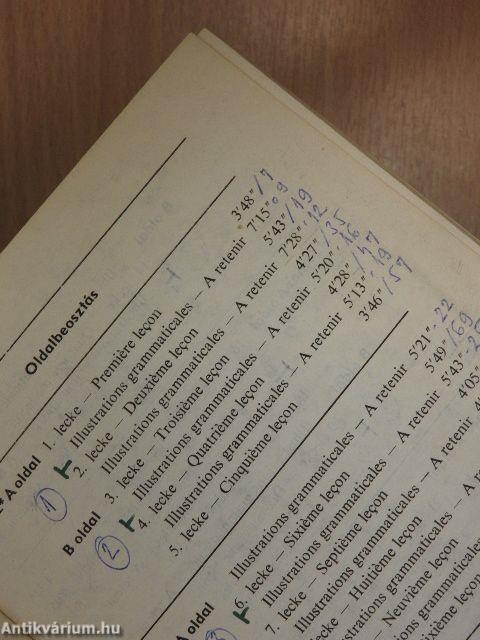 Oldalbeosztás
A oldal 1. lecke – Première leçon 3'48" /7
Illustrations grammaticales – A retenir 7'15" 09
① 2. lecke – Deuxième leçon 5'43" /19
Illustrations grammaticales – A retenir 7'28" 12
B oldal 3. lecke – Troisième leçon 4'27" /35
Illustrations grammaticales – A retenir 5'20" 16
② 4. lecke – Quatrième leçon 4'28" /77
Illustrations grammaticales – A retenir 5'13" 19
5. lecke – Cinquième leçon 3'46" /57
Illustrations grammaticales – A retenir 5'21" 22
A oldal 6. lecke – Sixième leçon 5'49" /69
Illustrations grammaticales – A retenir 5'43"
7. lecke – Septième leçon 4'05"
Illustrations grammaticales – A retenir
lecke – Huitième leçon
Illustrations grammaticales – A
Neuvième leçon
grammaticales
leçon
Antikvárium.hu